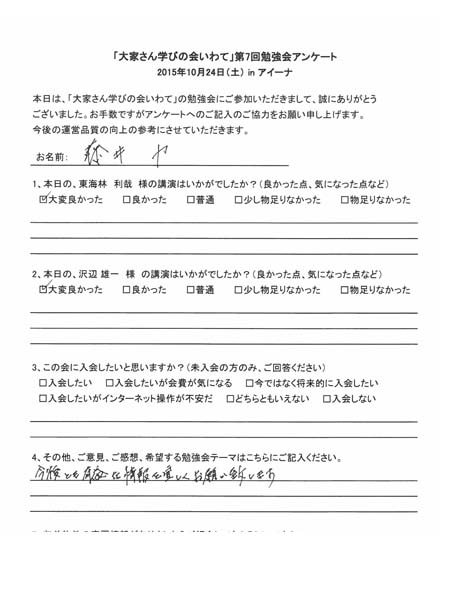 「大家さん学びの会いわて」第7回勉強会アンケート
2015年10月24日(土) in アイーナ
本日は、「大家さん学びの会いわて」の勉強会にご参加いただきまして、誠にありがとう
ございました。お手数ですがアンケートへのご記入のご協力をお願い申し上げます。
今後の運営品質の向上の参考にさせていただきます。
お名前:
1、本日の、東海林 利哉 様の講演はいかがでしたか?(良かった点、気になった点など)
☑大変良かった □良かった □普通 □少し物足りなかった □物足りなかった
2、本日の、沢辺 雄一 様 の講演はいかがでしたか?(良かった点、気になった点など)
☑大変良かった □良かった □普通 □少し物足りなかった □物足りなかった
3、この会に入会したいと思いますか?(未入会の方のみ、ご回答ください)
□入会したい □入会したいが会費が気になる □今ではなく将来的に入会したい
□入会したいがインターネット操作が不安だ □どちらともいえない □入会しない
4、その他、ご意見、ご感想、希望する勉強会テーマはこちらにご記入ください。
今後とも 情報を宜しくお願い致します